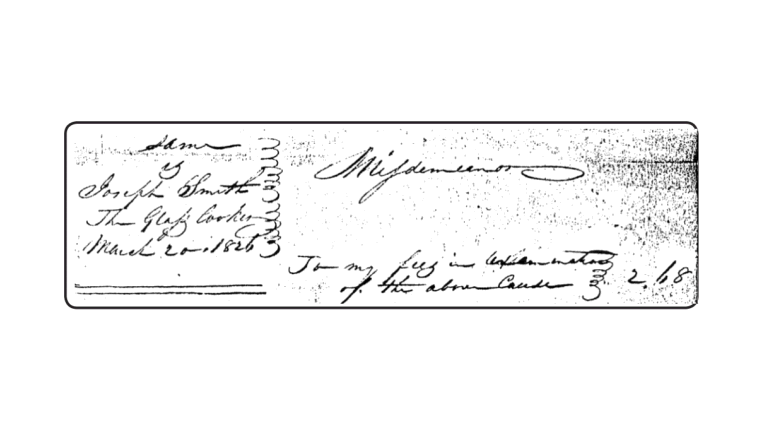 Same
vs
Joseph Smith
The Glass Looker
March 20, 1826
Misdemeanor
To my fees in examination
of the above Cause
2.68